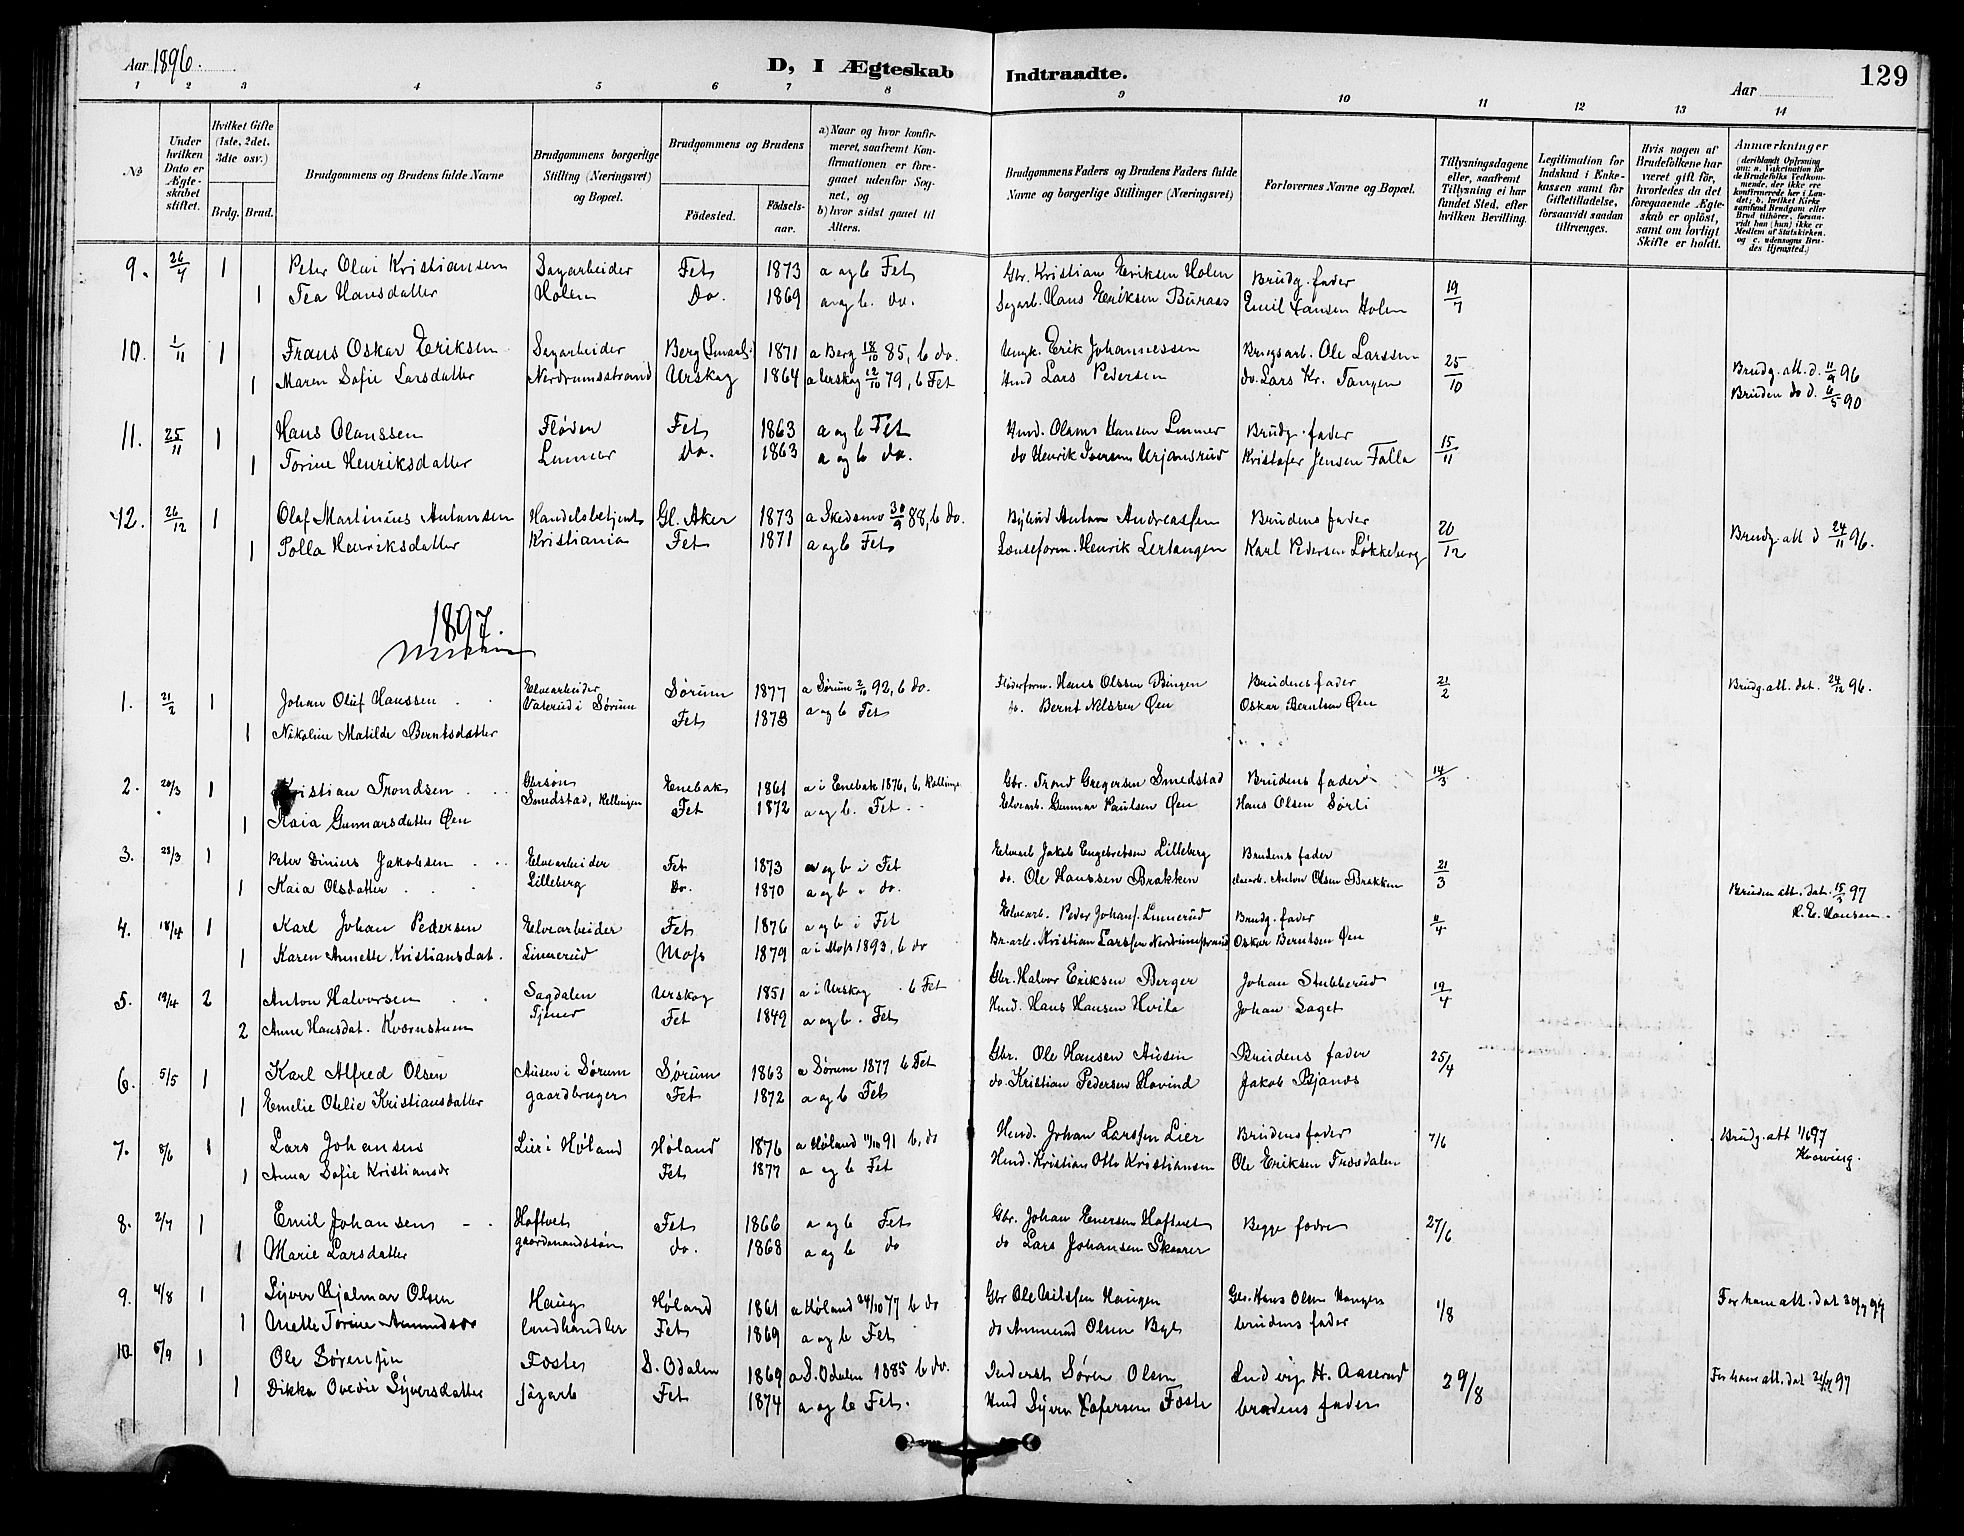 Aar 1896.
D, I Ægteskab Indtraadte.
Aar
129
1 2 3 4 5 6 7 8 9 10 11 12 13 14
No
Under hvilken Dato er Ægteskabet stiftet.
Hvilket Gifte (1ste, 2det, 3die osv.)
Brdg. Brud.
Brudgommens og Brudens fulde Navne
Brudgommens borgerlige Stilling (Næringsvei) og Bopæl.
Brudgommens og Brudens
Födested.
Födselsaar.
a) Naar og hvor konfirmeret, saafremt Konfirmationen er foregaaet udenfor Sognet, og
b) hvor sidst gaaet til Alters.
Brudgommens Faders og Brudens Faders fulde Navne og borgerlige Stillinger (Næringsvei)
Forlovernes Navne og Bopæl.
Tillysningsdagene eller, saafremt Tillysning ei har fundet Sted, efter hvilken Bevilling.
Legitimation for Indskud i Enkekassen samt for Giftetilladelse, forsaavidt saadan tiltrænges.
Hvis nogen af Brudefolkene har været gift för, hvorledes da det foregaaende Ægteskab er oplöst, samt om lovligt Skifte er holdt.
Anmærkninger
9. 26/7 1 Peter Olai Kristiansen Sagarbeider Fet 1873 a og b Fet Gbr. Kristian Eriksen Holen Brudg. fader 19/7
1 Tea Hansdatter Holen Do. 1869 a og b. do. Sagarb. Hans Eriksen Buraas Emil Hansen Holen
10. 1/11 1 Frans Oskar Eriksen Sagarbeider Berg (Smaal.) 1871 a Berg 18/10 85, b do. Erik Johannessen Brugsarb. Ole Larssen 25/10 Brudg. att. d. 11/9 96
1 Maren Sofie Larsdatter Nerdrumsstrand Urskog 1864 a Urskog 12/10 79, b Fet Hmd Lars Pedersen do. Lars Kr. Tangen Bruden do d. 6/5 90
11. 25/11 1 Hans Olaussen Fløder Fet 1863 a og b Fet Hmd. Olaus Hansen Linner Brudg. fader 15/11
1 Torine Henriksdatter Linner Do. 1863 a og b do. do Henrik Iversen Urjansrud Kristofer Jensen Falla
12. 26/12 1 Olaf Martinius Antonsen Handelsbetjent Gl. Aker 1873 a Skedsmo 30/9 88, b do. Anton Andreassen Brudens fader 20/12 Brudg. att d 24/11 96.
1 Polla Henriksdatter Kristiania Fet 1871 a og b Fet Lænseform. Henrik Lertangen Karl Pedersen Løkkeberg
1897.
1. 21/2 1 Johan Oluf Hanssen Elvearbeider Sørum 1877 a Sørum 2/10 92, b do. Fløderform. Hans Olssen Bingen Brudens fader 21/2 Brudg. att. dat. 24/12 96.
1 Nikoline Matilde Berntsdatter Vaterud i Sørum Fet 1873 a og b Fet do. Bernt Nilssen Øen Oskar Berntsen Øen
2. 28/3 1 Kristian Trondsen Gbrsøn Enebak 1861 a i Enebak 1876, b, Kellinge Gbr. Trond Gregersen Smedstad Brudens fader 14/3
1 Kaia Gunnarsdatter Øen Smedstad, Kellingen Fet 1872 a og b. Fet Elvearb. Gunnar Paulsen Øen Hans Olsen Sørli
3. 28/3 1 Peter Dinius Jakobsen Elvearbeider Fet 1873 a og b i Fet Elvearb Jakob Engebretsen Lilleberg Brudens fader 21/3
1 Kaia Olsdatter Lilleberg Do. 1870 a og b i do. do. Ole Hanssen Brakken elvearb. Anton Olsen Brakken Bruden att. dat. 15/3 97 Hansen
4. 18/4 1 Karl Johan Pedersen Elvearbeider Fet 1876 a og b i Fet Elvearb. Peder Johans. Linnerud Brudg. fader 11/4
1 Karen Annette Kristiansdat. Linnerud Moss 1879 a i Moss 1893, b do Br.arb. Kristian Larssen Nerdrumstrand Oskar Berntsen Øen
5. 19/4 2 Anton Halvorsen Sagdalen Urskog 1851 a i Urskog b Fet Gbr. Halvor Eriksen Berger Johan Stubberud 19/4
2 Anne Hansdat. Kvernstuen Tjener Fet 1849 a og b. Fet Hmd. Hans Hansen Hvila Johan Laget
6. 5/5 1 Karl Alfred Olsen Ausen i Sørum Sørum 1863 a Sørum 1877 b Fet Gbr. Ole Hansen Ausen Brudens fader 25/4
1 Emelie Otelie Kristiansdatter gaardbruger Fet 1872 a og b Fet do. Kristian Pedersen Hovind Jakob Bjanæs
7. 8/6 1 Lars Johansen Lier i Høland Høland 1876 a Høland 11/10 91 b, do Hmd. Johan Larssen Lier Brudens fader 7/6 Brudg. att 1/6 97
1 Anna Sofie Kristiansdr Fet 1877 a og b Fet Hmd. Kristian Otto Kristiansen Ole Eriksen Trosdalen
8. 2/7 1 Emil Johansen Hoftvet Fet 1866 a og b Fet Gbr. Johan Enersen Hoftvet Begge fædre 27/6
1 Marie Larsdatter gaardmandssøn do. 1868 a og b do do Lars Johansen Skaarer
9. 4/8 1 Syver Hjalmar Olsen Haug Høland 1861 a Høland 24/10 77 b do Gbr Ole Nilssen Haugen Gbr. Hans Olsen Haugen 1/8 For ham att. dat
1 Anette Torine Amundsdr landhandler Fet 1869 a og b Fet do Amund Olsen Bye brudens fader
10. 5/9 1 Ole Sørensen Foster S. Odalen 1869 a S. Odalen 1885 b do. Inderst Søren Olsen Ludvig H. Aaserud 29/8 For ham att. dat 97
1 Dikka Ovedie Syversdatter Fet 1874 a og b Fet. Hmd Syver Foster brudens fader